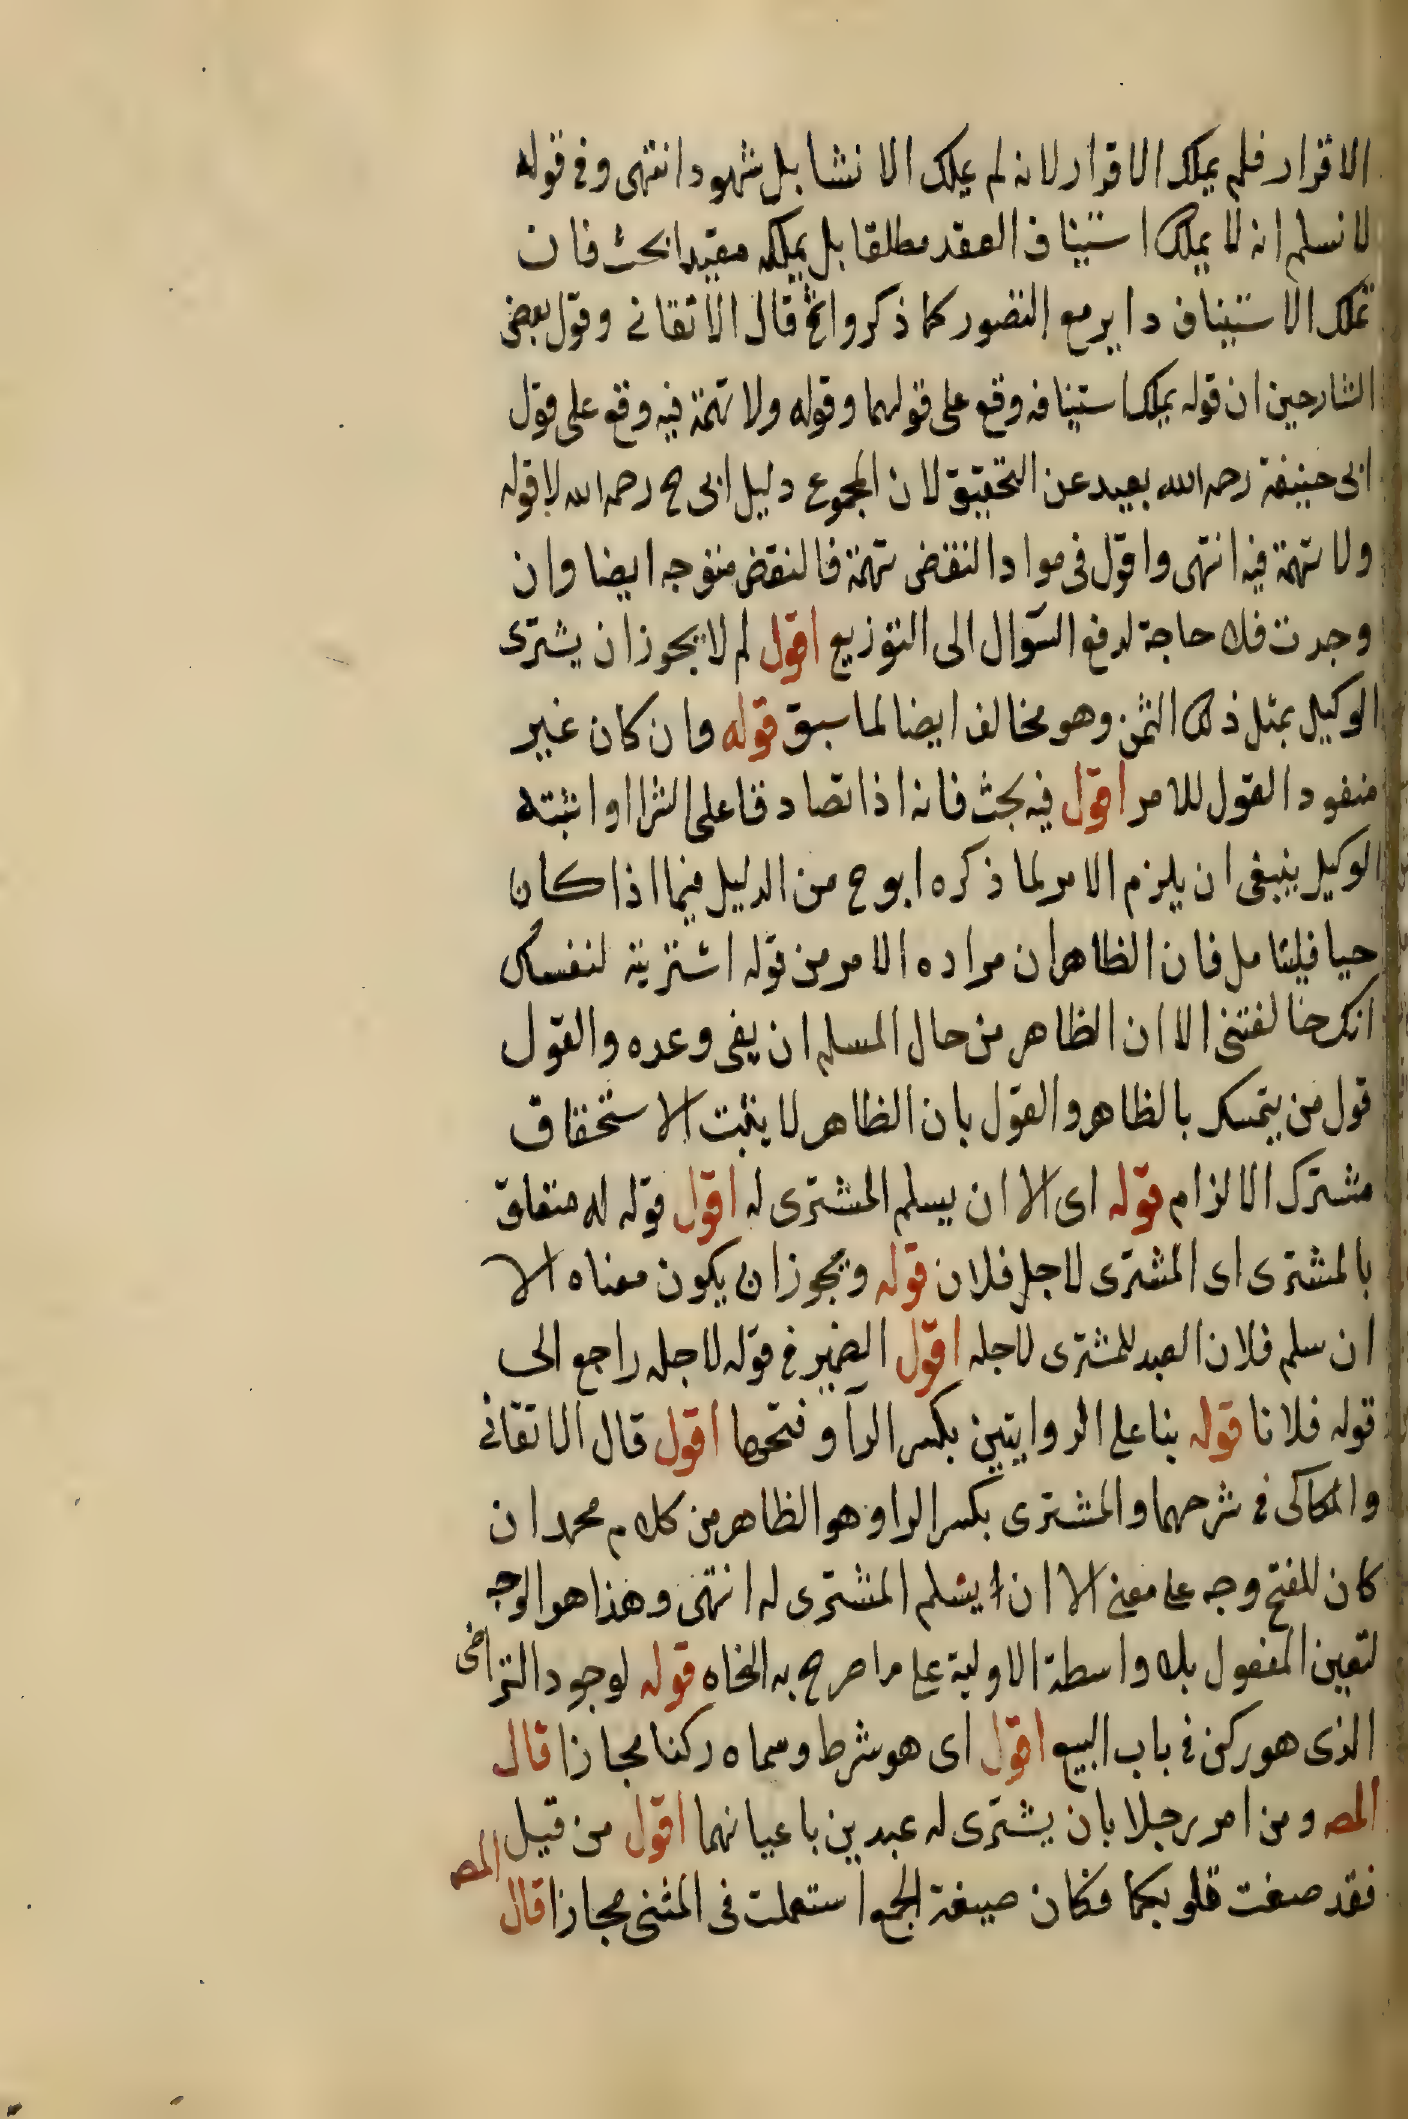 الاقرار فلم يملك الاقرار لانه لم يملك الانشا بل شهود انتهى وفى قوله
لا نسلم انه لا يملك استيناف العقد مطلقا بل يملكه مقيدا بحث فان
تملك الاستيناف داير مع التصور كما ذكروا الخ قال الاتقانى وقول بعض
الشارحين ان قوله يملك استينافه وقع على قولهما وقوله ولا تهمة فيه وقع على قول
ابى حنيفة رحمه الله بعيد عن التحقيق لان المجموع دليل ابى ح رحمه الله لا قوله
ولا تهمة فيه انتهى واقول فى مواد النقض تهمة فالنقض متوجه ايضا وان
وجدت فلا حاجة لدفع السؤال الى التوزيع اقول لم لا يجوز ان يشترى
الوكيل بمثل ذلك الثمن وهو مخالف ايضا لما سبق قوله وان كان غير
منقود القول للامر اقول فيه بحث فانه اذا تصادقا على الشرا او اثبته
الوكيل ينبغى ان يلزم الامر لما ذكره ابو ح من الدليل فيما اذا كان
حيا فليتامل فان الظاهر ان مراده الامر من قوله اشتريته لنفسك
انك خالفتنى الا ان الظاهر من حال المسلم ان يفى وعده والقول
قول من يتمسك بالظاهر والقول بان الظاهر لا يثبت الاستحقاق
مشترك الالزام قوله اى الا ان يسلم المشترى له اقول قوله له متعلق
بالمشترى اى المشترى لاجل فلان قوله ويجوز ان يكون معناه الا
ان سلم فلان العبد للمشترى لاجله اقول الضمير فى قوله لاجله راجع الى
قوله فلانا قوله بنا على الروايتين بكسر الرآ وفتحها اقول قال الاتقانى
والكاكى فى شرحهما والمشترى بكسر الرا وهو الظاهر من كلام محمد ان
كان للفتح وجه على معنى الا ان يسلم المشترى له انتهى وهذا هو الوجه
لتعين المفعول بلا واسطة الاولية على ما صرح به النحاه قوله لوجود التراضى
الذى هو ركن فى باب البيع اقول اى هو شرط وسماه ركنا مجازا قال
المص ومن امر رجلا بان يشترى له عبدين باعيانهما اقول من قبيل
فقد صغت قلوبكما فكان صيغة الجمع استعملت فى المثنى مجازا قال المص